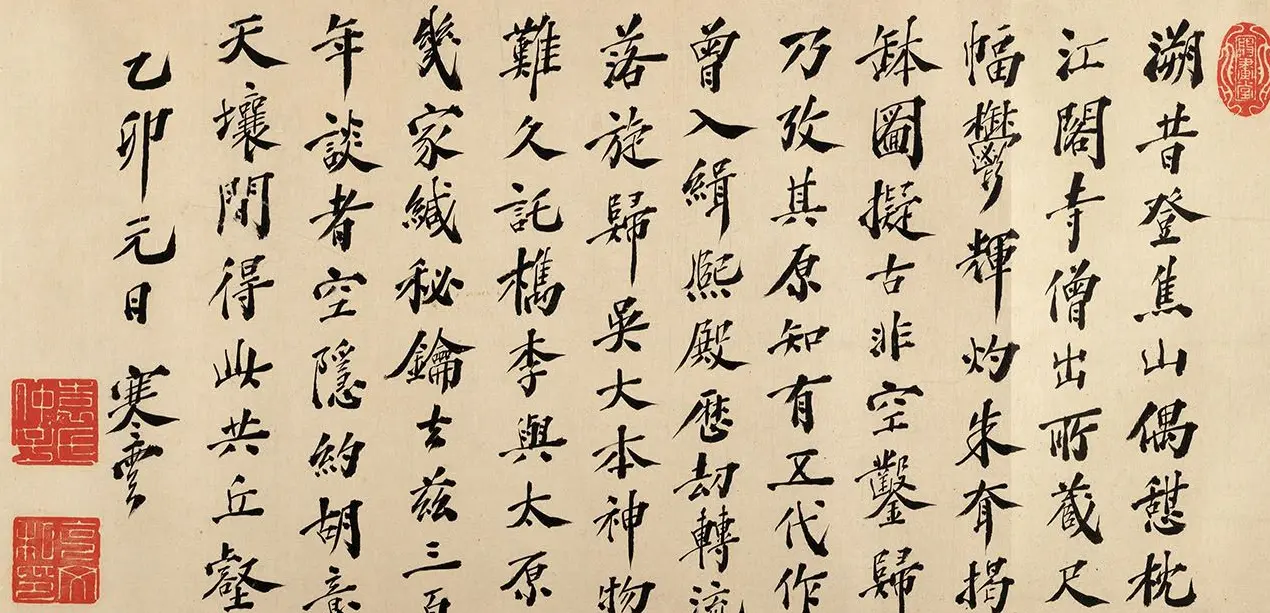 溯昔登焦山偶憩枕
江閣寺僧出所蔵尺
幅鬱輝灼朱耷揭
鉢圖擬古非空鑿歸
乃攷其原知有五代作
曾入緝熙殿歷劫轉流
落旋歸吳大本神物
難久託檇李與太原
幾家緘秘鑰去茲三百
年談者空隱約胡意
天壤間得此共丘壑
乙卯元日 寒雲